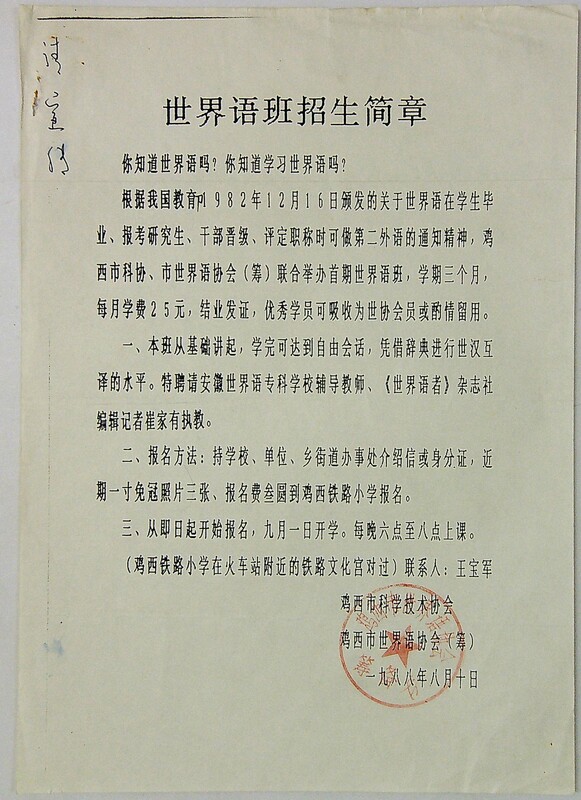 请
宣
传
世界语班招生简章
你知道世界语吗？你知道学习世界语吗？
根据我国教育1982年12月16日颁发的关于世界语在学生毕
业、报考研究生、干部晋级、评定职称时可做第二外语的通知精神，鸡
西市科协、市世界语协会（筹）联合举办首期世界语班，学期三个月，
每月学费25元，结业发证，优秀学员可吸收为世协会员或酌情留用。
一、本班从基础讲起，学完可达到自由会话，凭借辞典进行世汉互
译的水平。特聘请安徽世界语专科学校辅导教师、《世界语者》杂志社
编辑记者崔家有执教。
二、报名方法：持学校、单位、乡街道办事处介绍信或身分证，近
期一寸免冠照片三张、报名费叁圆到鸡西铁路小学报名。
三、从即日起开始报名，九月一日开学。每晚六点至八点上课。
（鸡西铁路小学在火车站附近的铁路文化宫对过）联系人：王宝军
鸡西市科学技术协会
鸡西市世界语协会（筹）
一九八八年八月十日